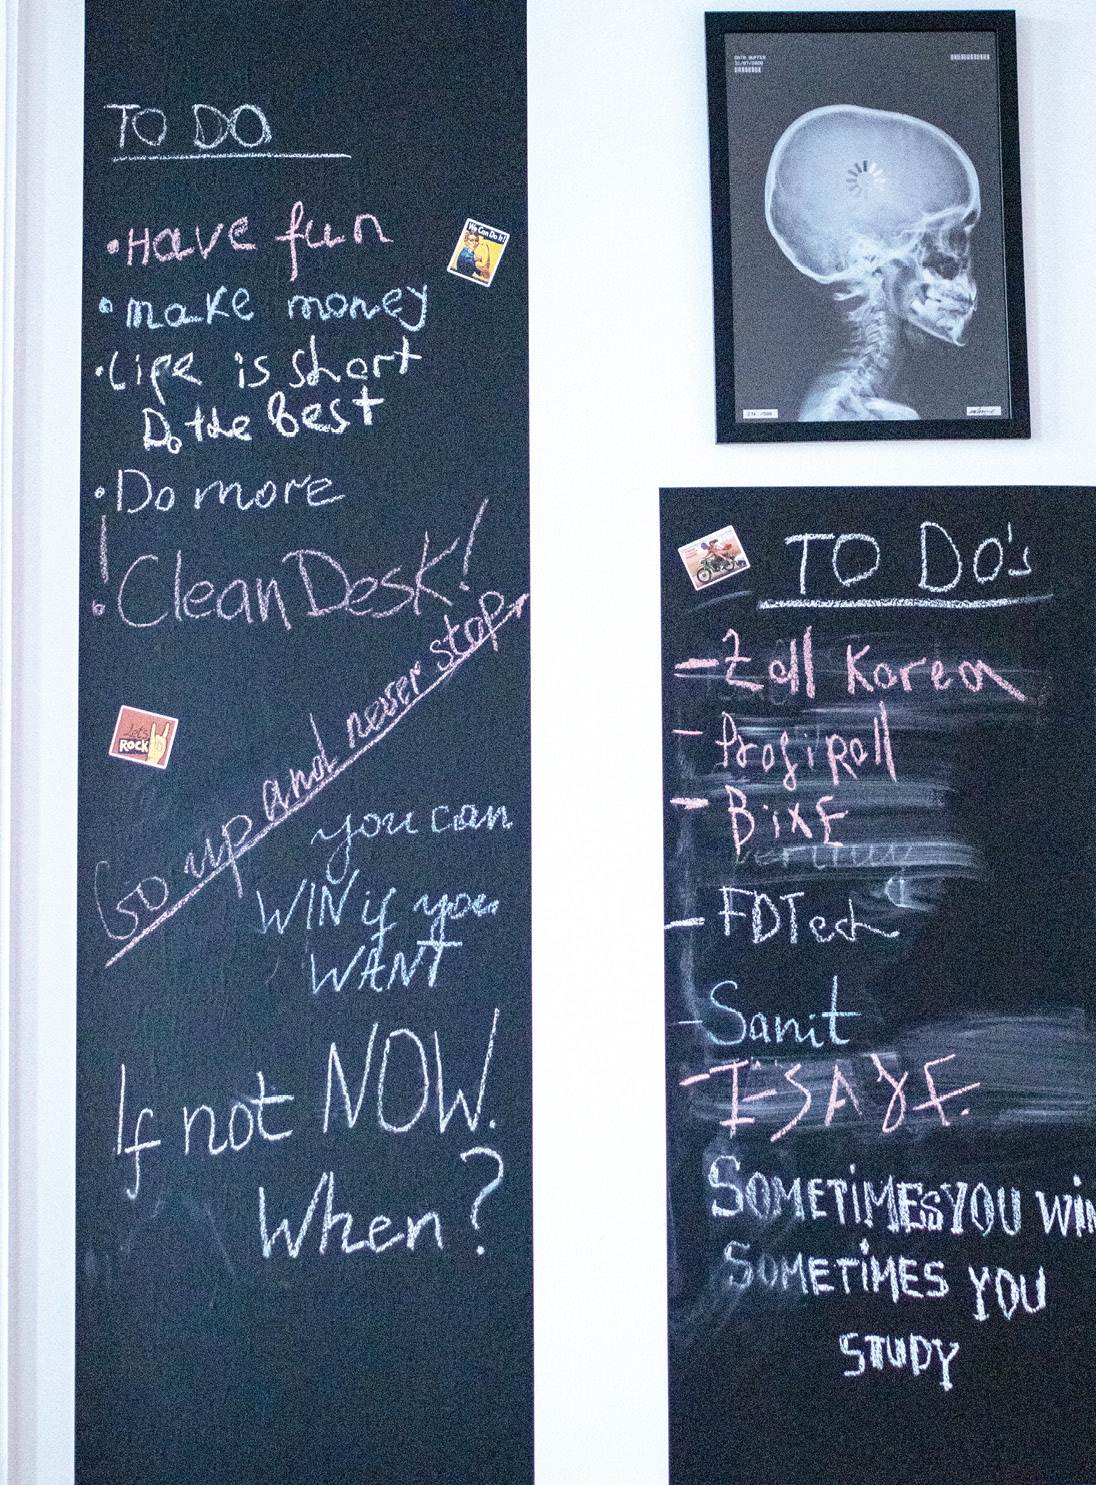 TO DO
• Have fun
• make money
• Life is short
Do the Best
• Do more
! Clean Desk!
Go up and never stop
you can
WIN if you
WANT
If not NOW.
When?
We Can Do It!
Let's
ROCK
DATA BUFFER
31/07/2020
274 / 500
TO DO's
- Zall Korea
- Profiroll
- BiXE
- FDTech
- Sanit
- I-SAYE.
SOMETIMES YOU WIN
SOMETIMES YOU
STUDY